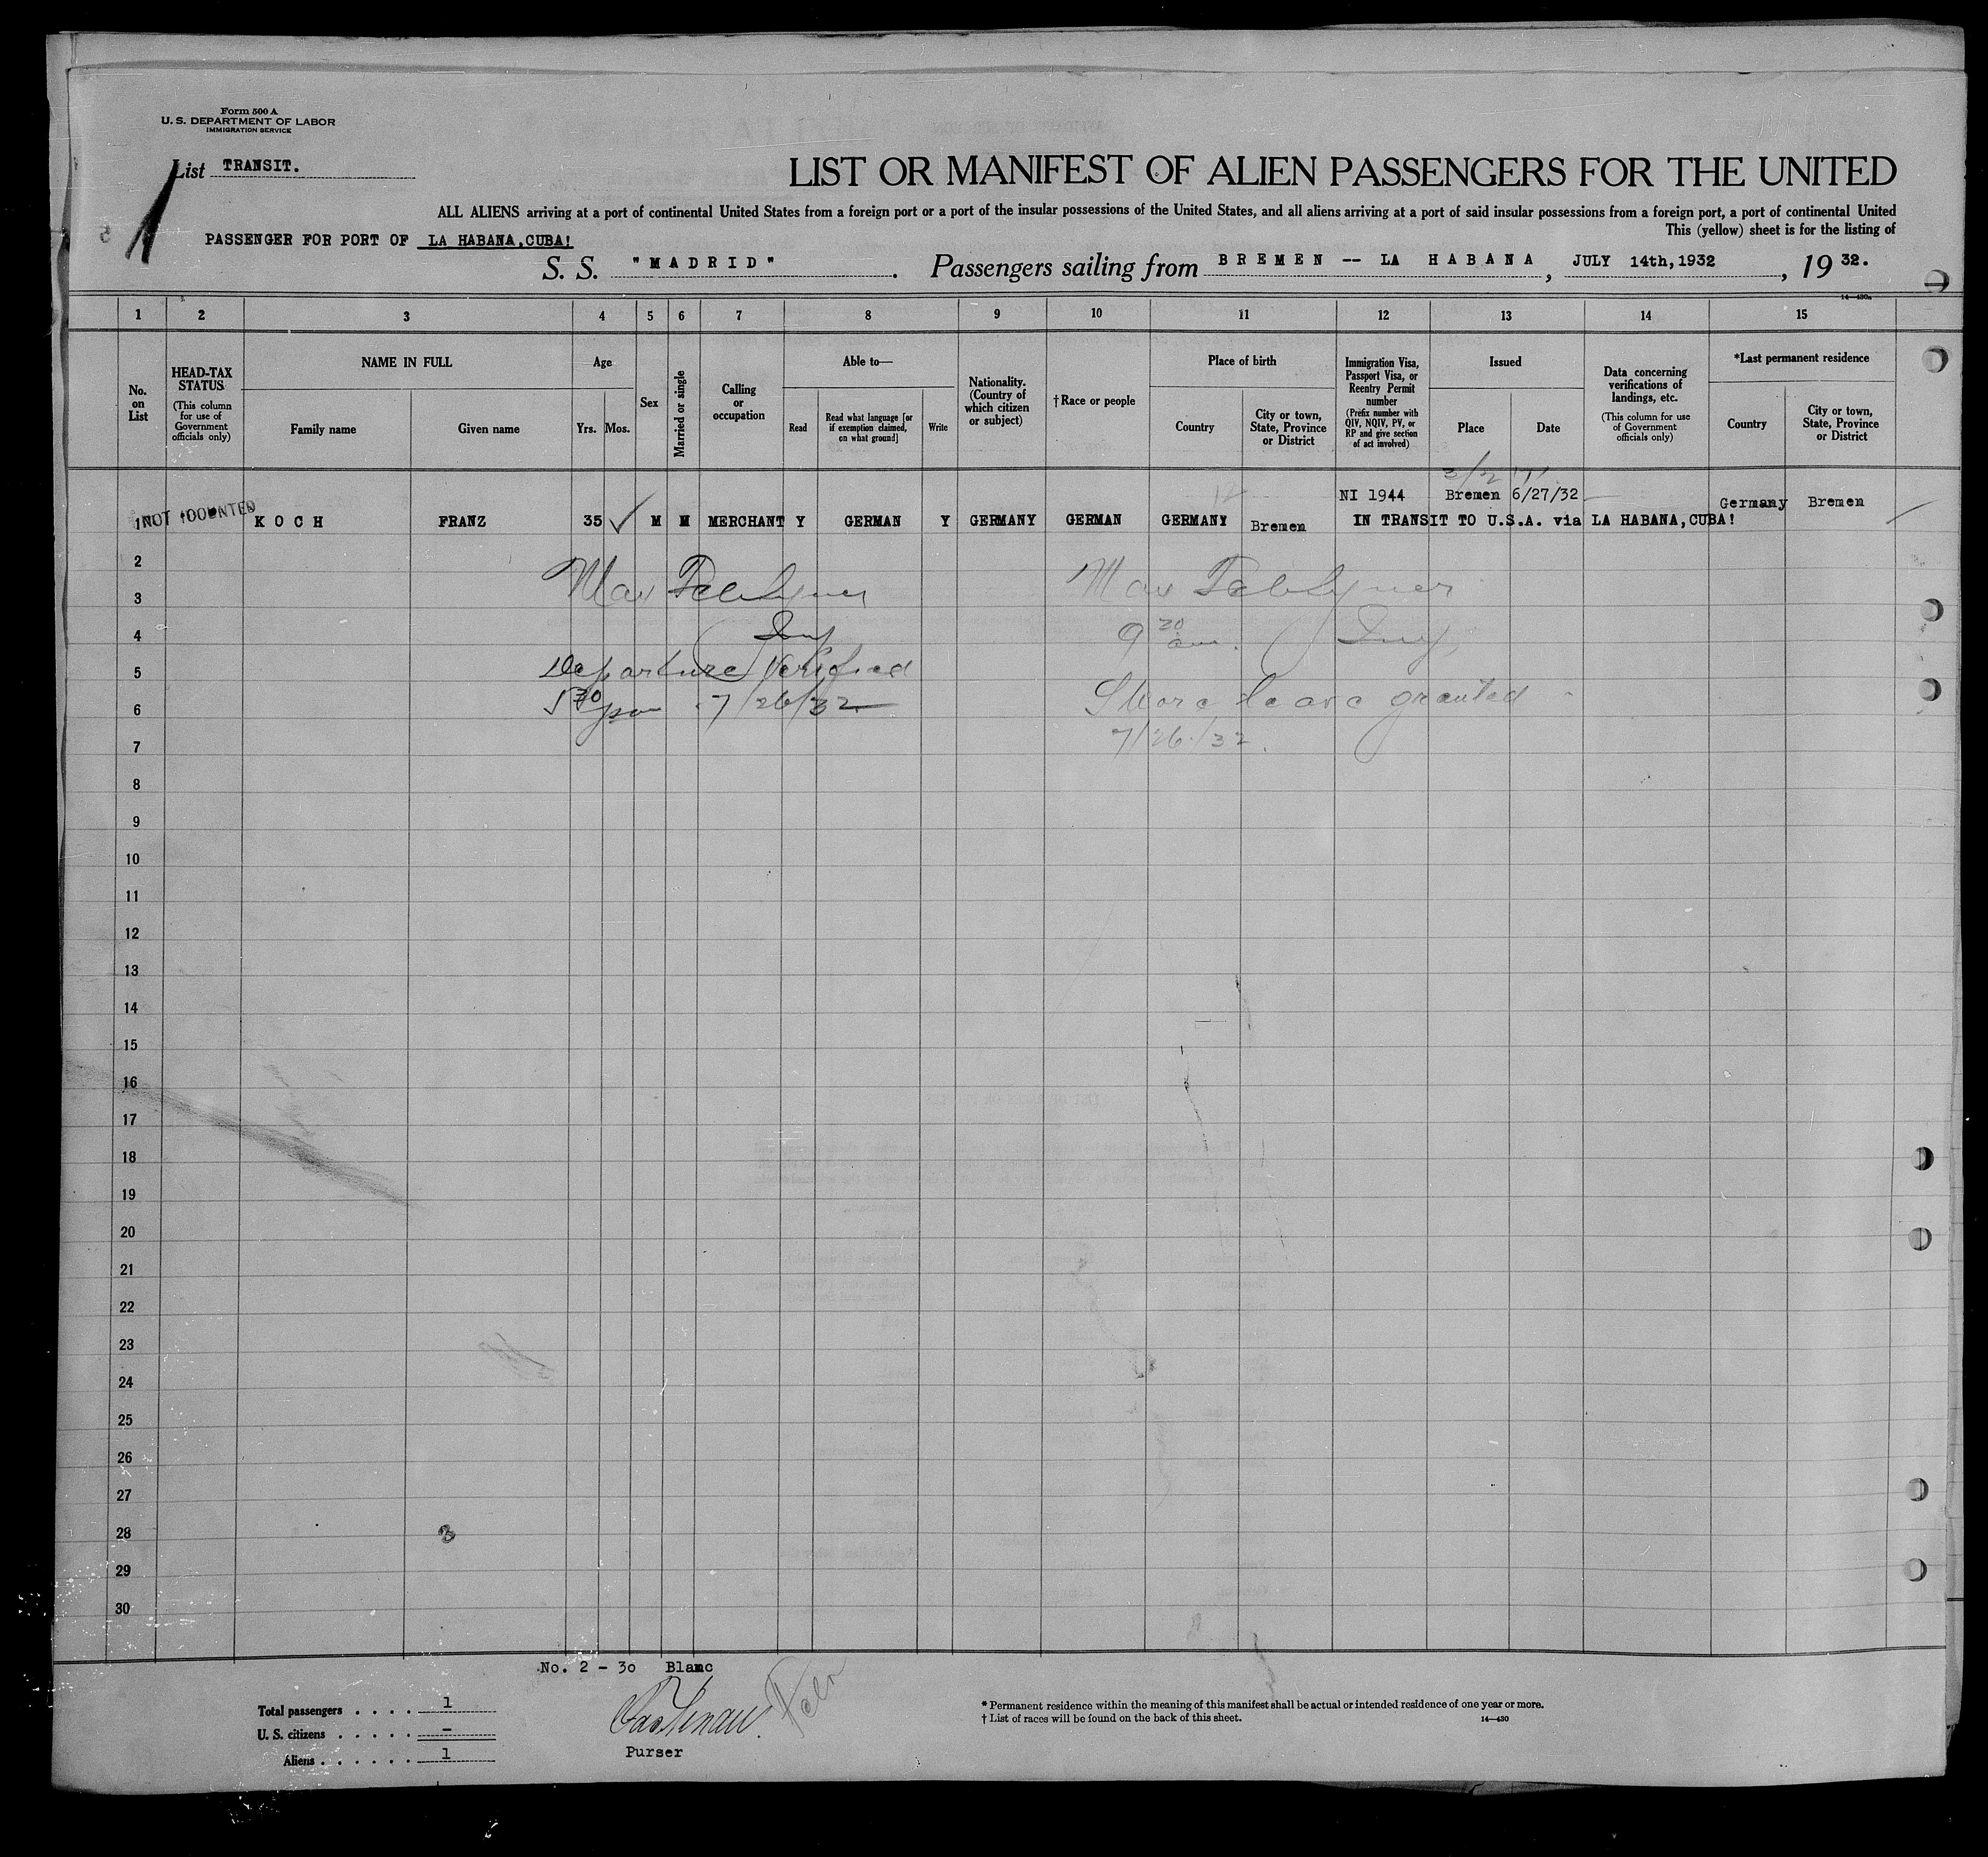 Form 500 A
U. S. DEPARTMENT OF LABOR
IMMIGRATION SERVICE
List TRANSIT.
LIST OR MANIFEST OF ALIEN PASSENGERS FOR THE UNITED
ALL ALIENS arriving at a port of continental United States from a foreign port or a port of the insular possessions of the United States, and all aliens arriving at a port of said insular possessions from a foreign port, a port of continental United
This (yellow) sheet is for the listing of
PASSENGER FOR PORT OF LA HABANA,CUBA!
S. S. "MADRID". Passengers sailing from BREMEN -- LA HABANA, JULY 14th,1932, 19 32.
14—430a
1 2 3 4 5 6 7 8 9 10 11 12 13 14 15
No. on List
HEAD-TAX STATUS (This column for use of Government officials only)
NAME IN FULL
Family name
Given name
Age
Yrs.
Mos.
Sex
Married or single
Calling or occupation
Able to—
Read
Read what language [or if exemption claimed, on what ground]
Write
Nationality. (Country of which citizen or subject)
† Race or people
Place of birth
Country
City or town, State, Province or District
Immigration Visa, Passport Visa, or Reentry Permit number (Prefix number with QIV, NQIV, PV, or RP and give section of act involved)
Issued
Place
Date
Data concerning verifications of landings, etc. (This column for use of Government officials only)
*Last permanent residence
Country
City or town, State, Province or District
NI 1944 Bremen 6/27/32 Germany Bremen
1 NOT COUNTED KOCH FRANZ 35 M M MERCHANT Y GERMAN Y GERMANY GERMAN GERMANY Bremen IN TRANSIT TO U.S.A. via LA HABANA,CUBA!
2
Max Max
3
4
9 30 am.
5 Departure Verified
6 5 30 pm 7/26/32 Shore leave granted
7 7/26/32.
8
9
10
11
12
13
14
15
16
17
18
19
20
21
22
23
24
25
26
27
28
29
30
No. 2 - 30 Blanc
Total passengers . . . . 1
U. S. citizens . . . . . –
Aliens . . . . . . 1
Purser
* Permanent residence within the meaning of this manifest shall be actual or intended residence of one year or more.
† List of races will be found on the back of this sheet.
14—430